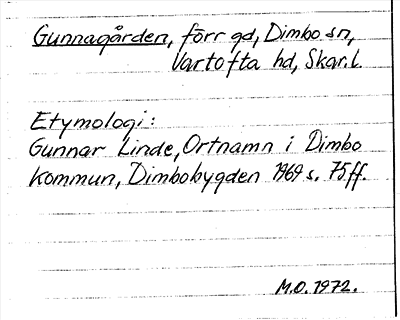 Gunnagården, förr gd, Dimbo sn,
Vartofta hd, Skar.l.
Etymologi:
Gunnar Linde, Ortnamn i Dimbo
kommun, Dimbobygden 1969 s. 75ff.
M.O. 1972.